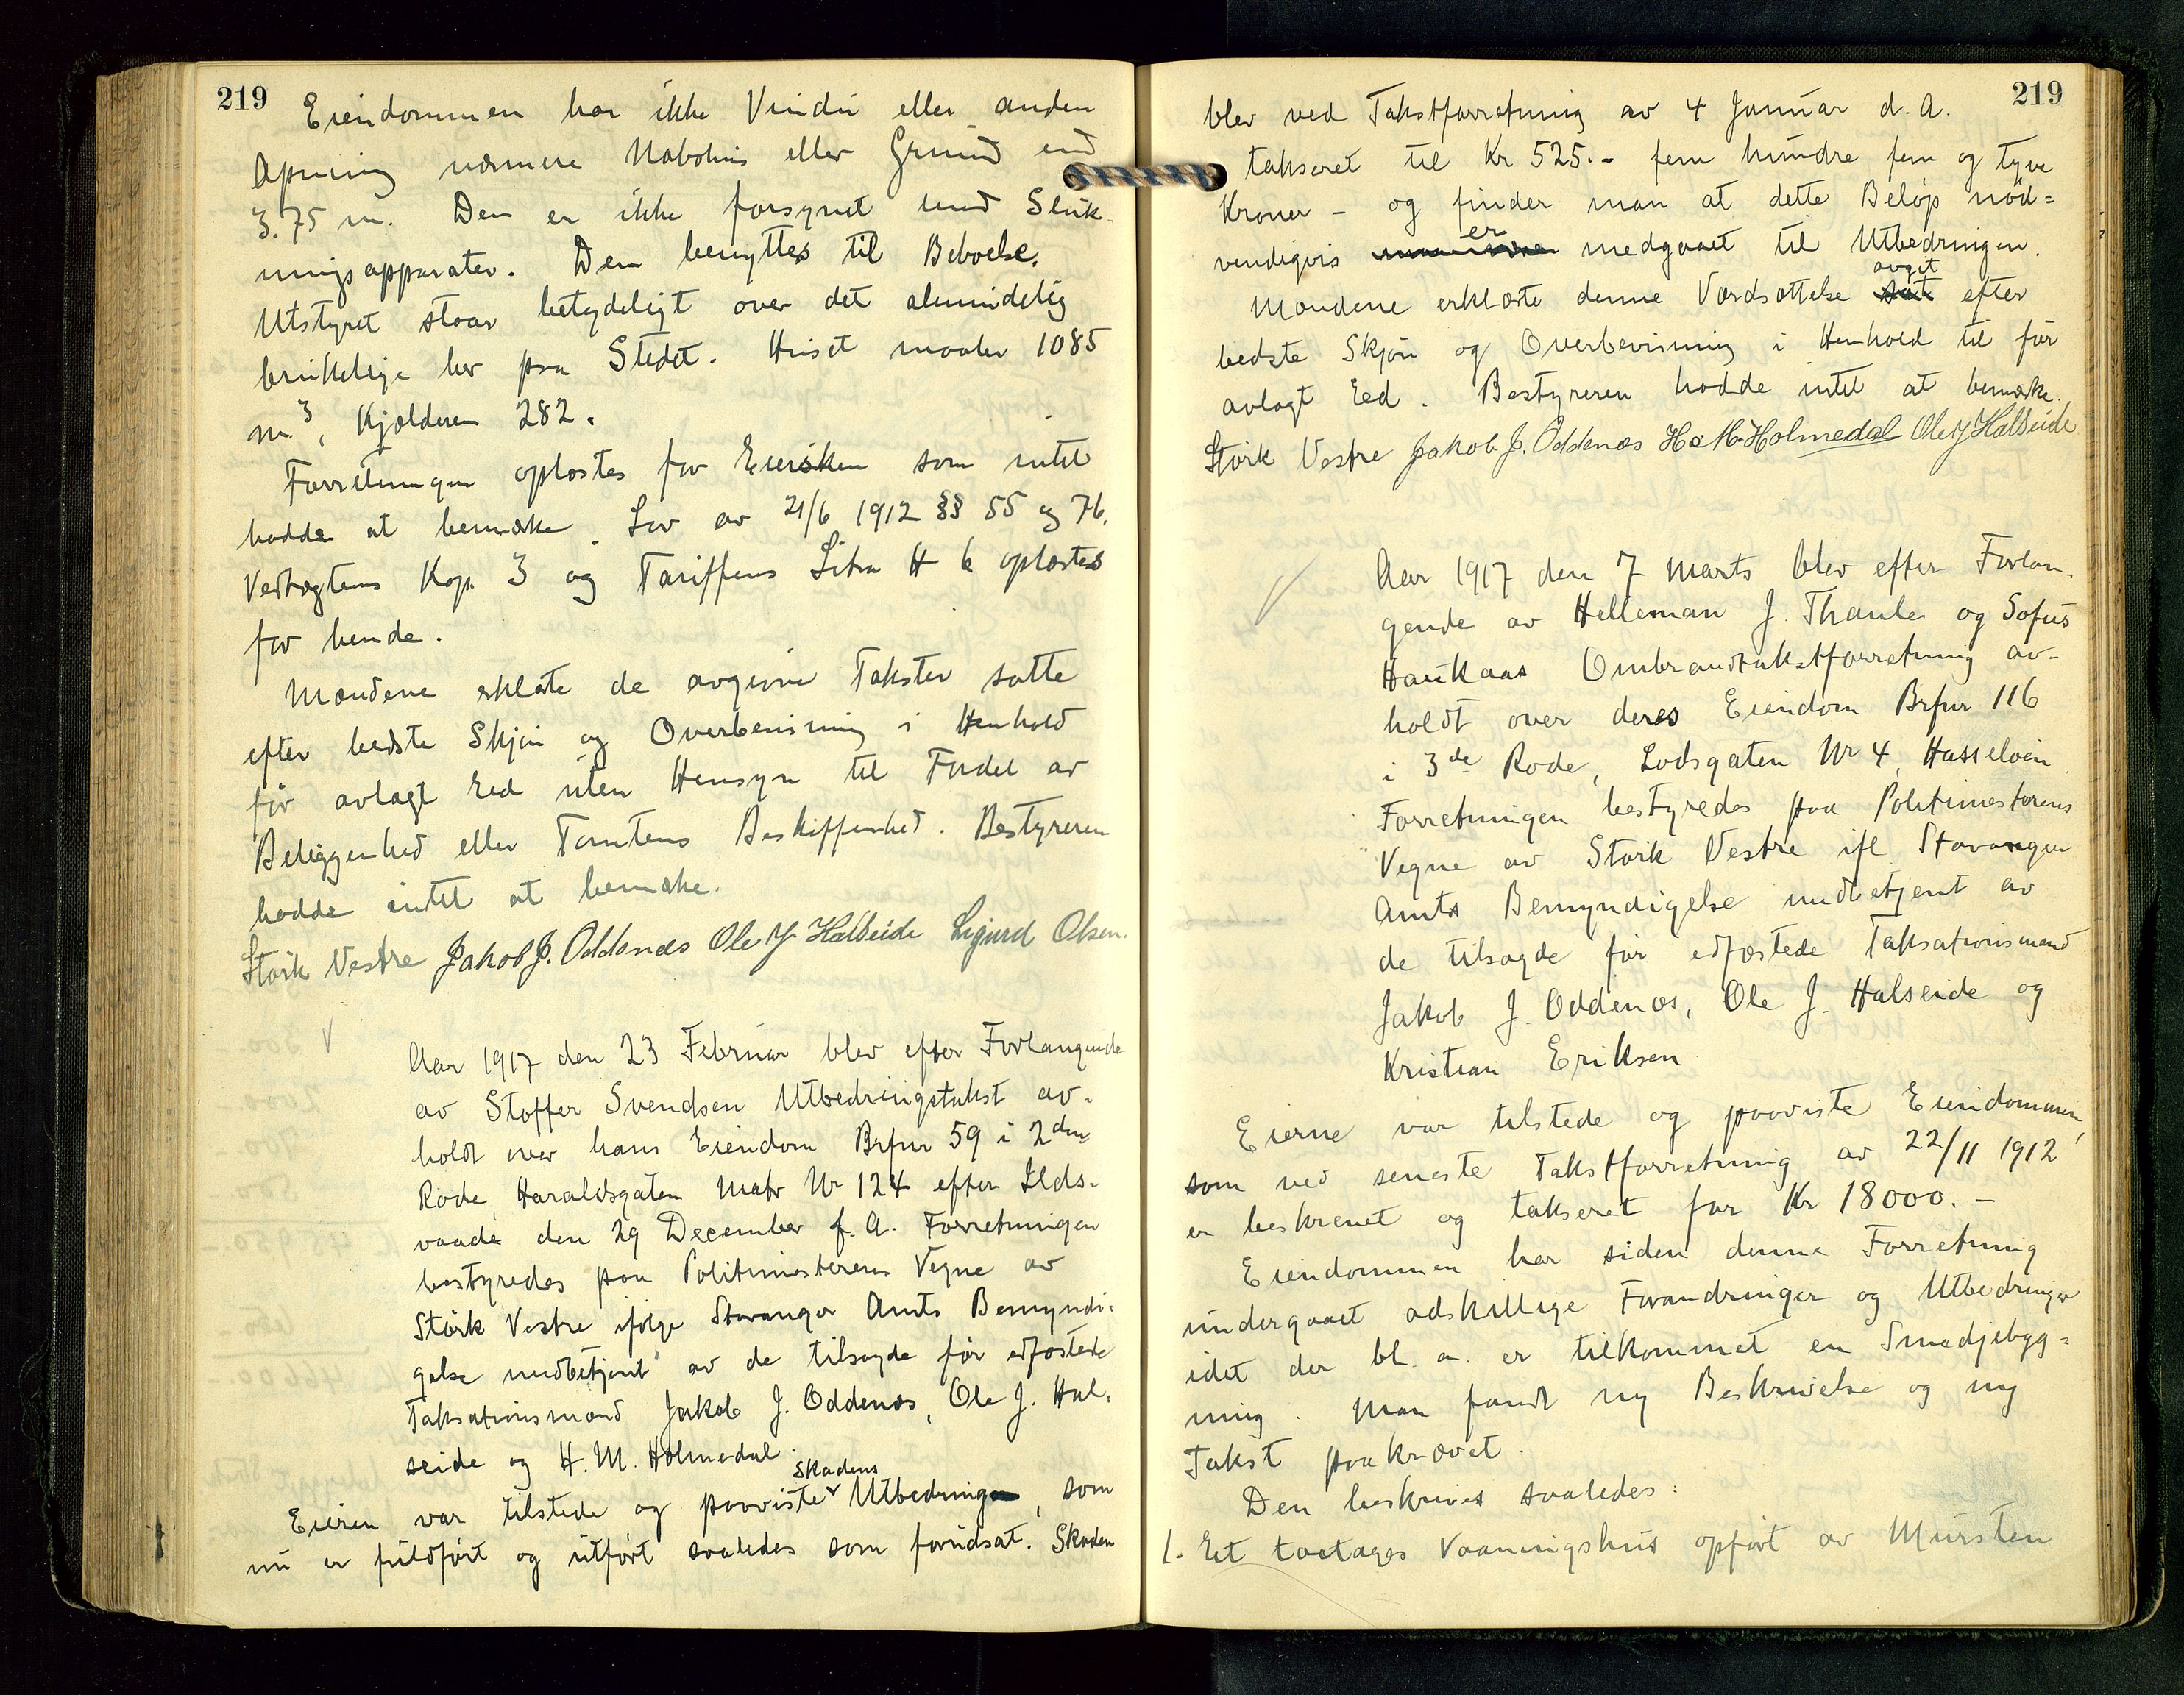 219
Eiendommen har ikke Vindu eller anden
Aapning nærmere Nabohus eller Grund end
3.75 m. Den er ikke forsynet med Sluk-
ningsapparater. Den benyttes til Beboelse.
Utstyret staar betydeligt over det almindelig
brukelige her paa Stedet. Huset maaler 1085
m³, Kjælderen 282.
Forretningen oplæstes for Eiersken som intet
hadde at bemærke. Lov av 21/6 1912 §§ 55 og 76.
Vedtægtens Kap. 3 og Tariffens Litra H 6 oplæstes
for hende.
Mændene erklærte de avgivne Takster satte
efter bedste Skjøn og Overbevisning i Henhold
før avlagt Eed uten Hensyn til Fordel av
Beliggenhed eller Tomtens Beskaffenhet. Bestyreren
hadde intet at bemærke.
Størk Vestre Jakob J. Oddenæs Ole J Halseide Sigurd Olsen.
Aar 1917 den 23 Februar blev efter Forlangende
av Stoffer Svendsen Utbedringstakst av-
holdt over hans Eiendom Brfnr 59 i 2den
Rode, Haraldsgaten Matr Nr 124 efter Ilds-
vaade den 29 December f. A. Forretningen
bestyredes paa Politimesterens Vegne av
Størk Vestre ifølge Stavanger Amts Bemyndi-
gelse medbetjent av de tilsagde før edfæstede
Taksationsmænd Jakob J. Oddenæs, Ole J. Hal-
seide og H. M. Holmedal.
Eieren var tilstede og paaviste Skadens Utbedring, som
nu er fuldført og utført saaledes som forudsat. Skaden
219
blev ved Takstforretning av 4 Januar d. A.
takseret til Kr 525.- fem hundre fem og tyve
Kroner - og finder man at dette Beløp nød-
vendigvis er medgaaet til Utbedringen.
Mændene erklærte denne Værdsættelse avgit efter
bedste Skjøn og Overbevisning i Henhold til før
avlagt Eed. Bestyreren hadde intet at bemærke.
Størk Vestre Jakob J. Oddenæs H. M. Holmedal Ole J Halseide
Aar 1917 den 7 Marts blev efter Forlan-
gende av Helleman J. Thaule og Sofus
Haukaas Ombrandtakstforretning av-
holdt over deres Eiendom Brfnr 116
i 3de Rode, Lodsgaten Nr 4, Hasseløen
Forretningen bestyredes paa Politimesterens
Vegne av Størk Vestre ifl. Stavanger
Amts Bemyndigelse medbetjent av
de tilsagde før edfæstede Taksationsmænd
Jakob J. Oddenæs, Ole J. Halseide og
Kristian Eriksen.
Eierne var tilstede og paaviste Eiendommen,
som ved seneste Takstforretning av 22/11 1912
er beskrevet og takseret for Kr 18000.-
Eiendommen har siden denne Forretning
undergaaet adskillige Forandringer og Utbedringer
idet der bl. a. er tilkommet en Smedjebyg-
ning. Man fandt ny Beskrivelse og ny
Takst paakrævet.
Den beskrives saaledes:
1. Et toetages Vaaningshus opført av Mursten